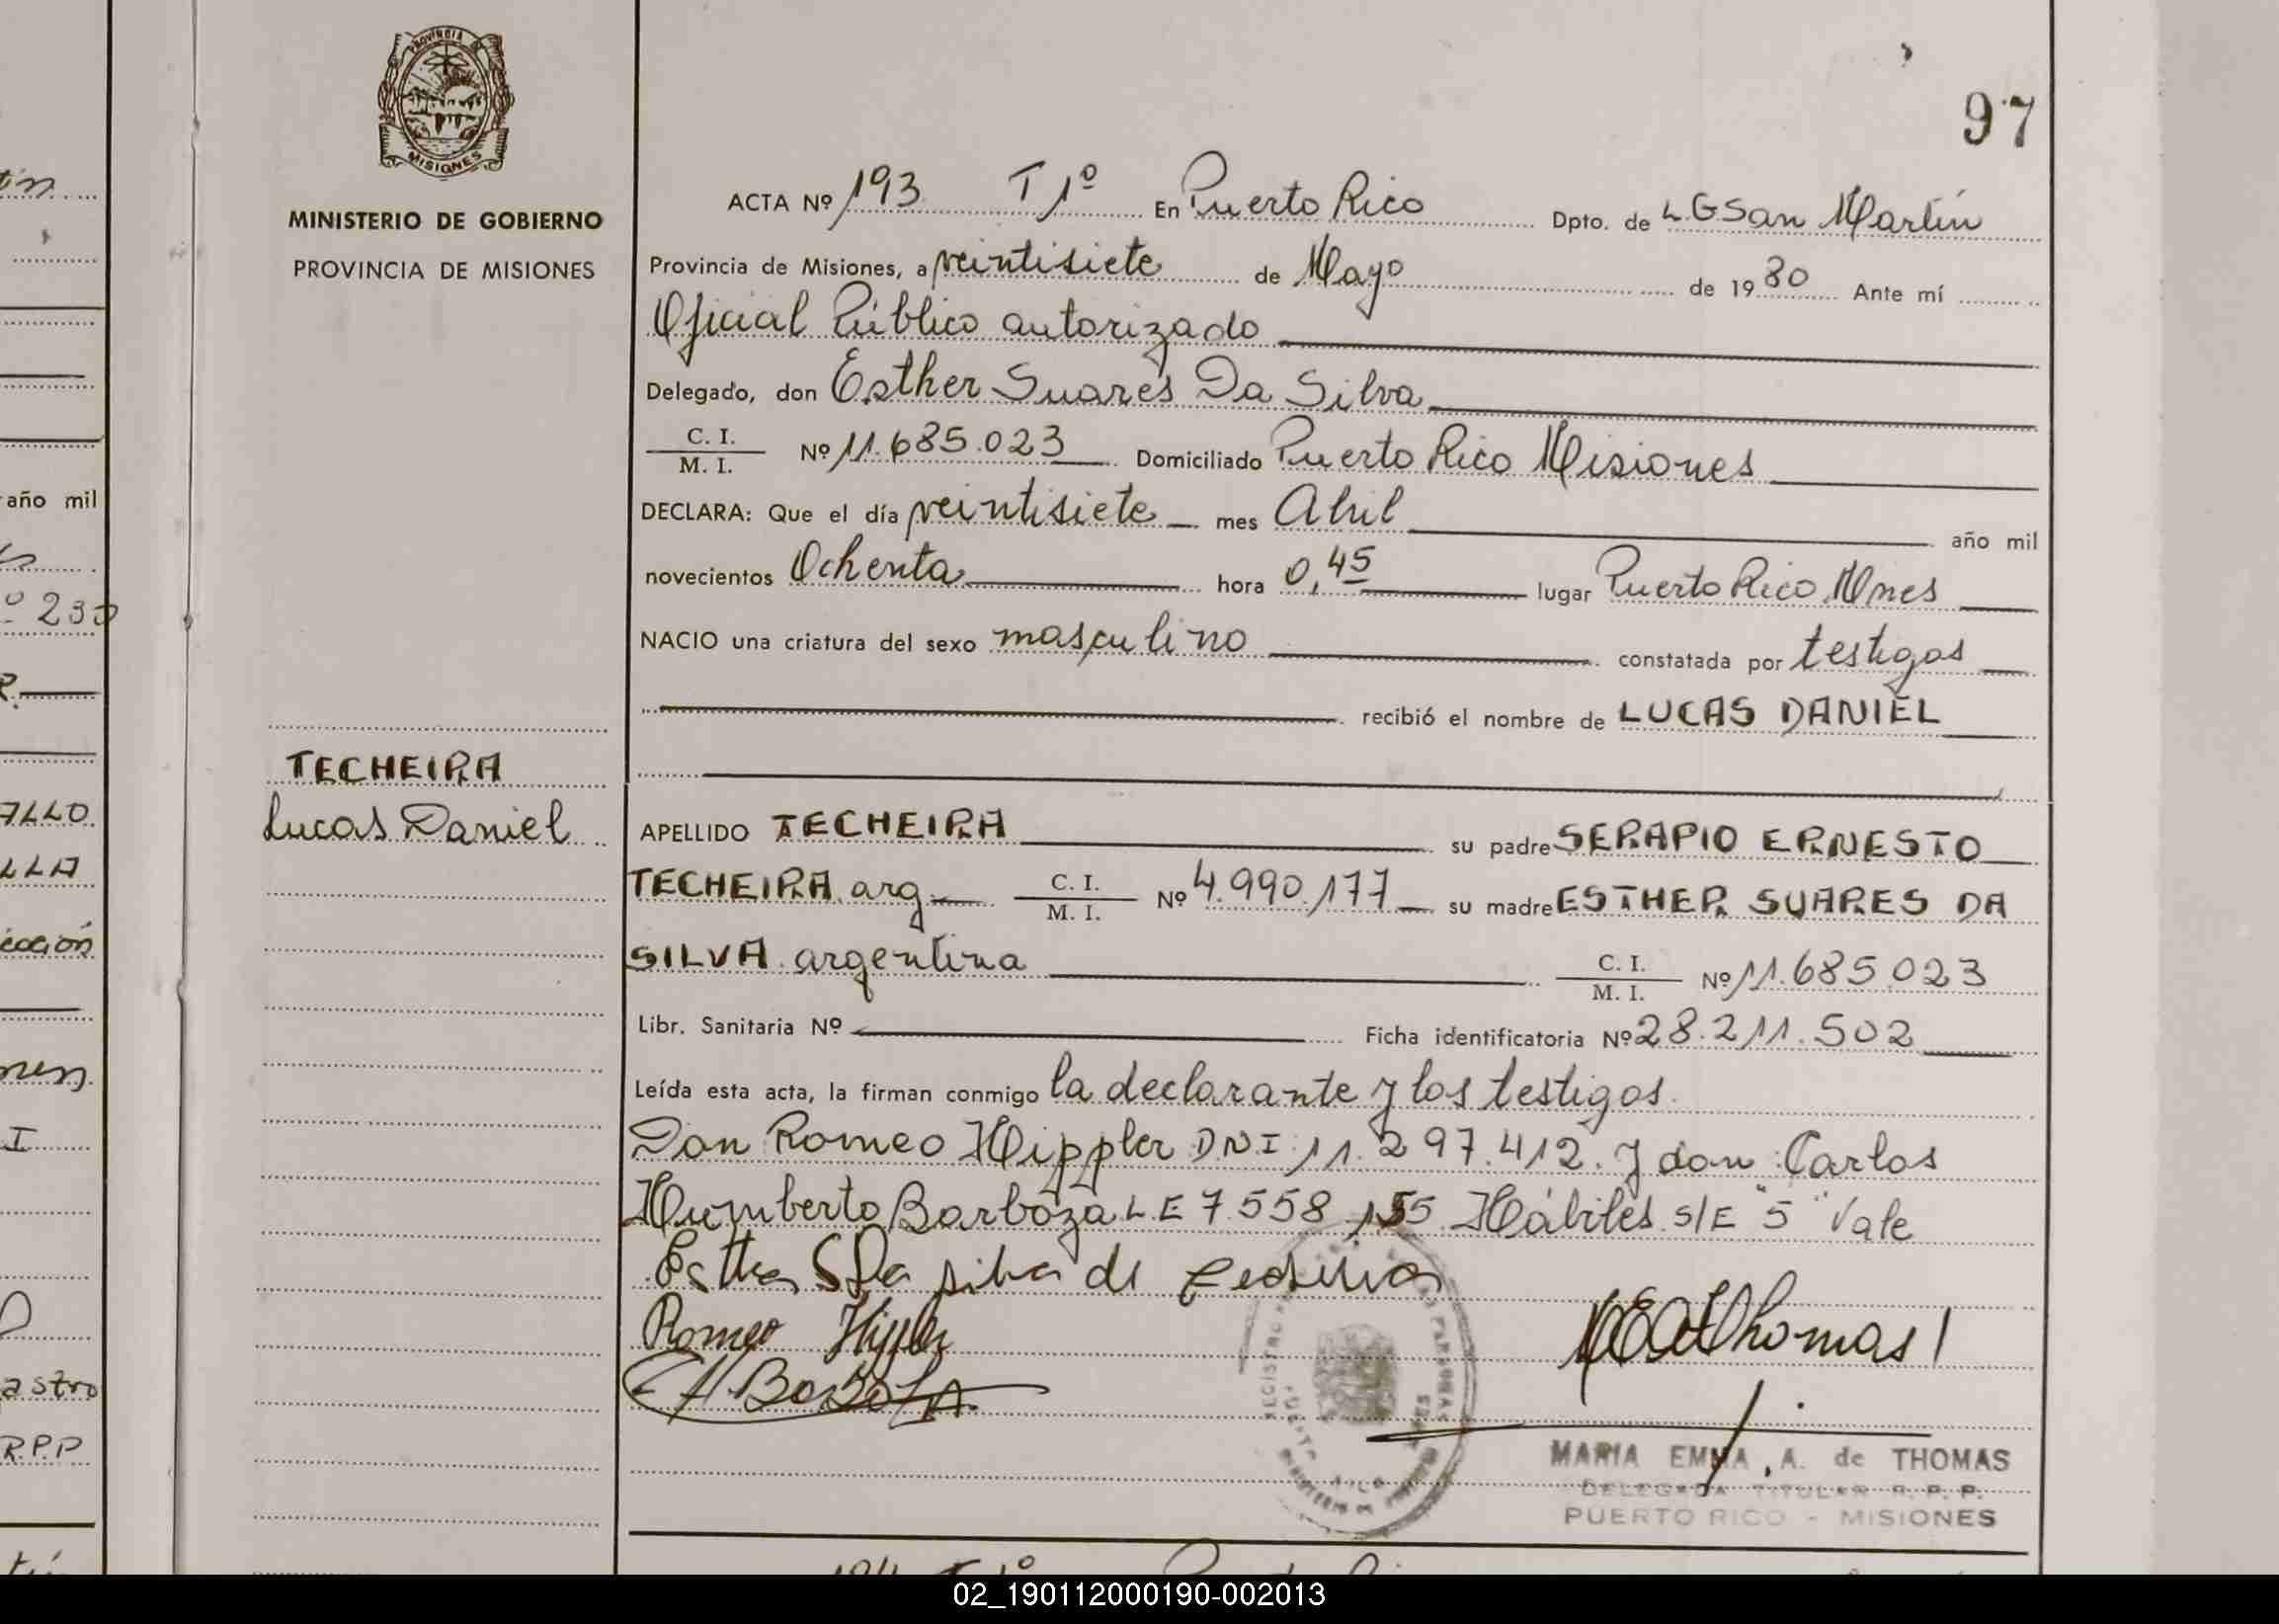 PROVINCIA DE
MISIONES
MINISTERIO DE GOBIERNO
PROVINCIA DE MISIONES
97
ACTA Nº 193 T 1º En Puerto Rico Dpto. de L.G San Martín
Provincia de Misiones, a veintisiete de Mayo de 1980 Ante mí
Oficial Público autorizado
Delegado, don Esther Suares Da Silva
C. I.
M. I. Nº 11.685.023 Domiciliado Puerto Rico Misiones
DECLARA: Que el día veintisiete mes Abril año mil
novecientos Ochenta hora 0,45 lugar Puerto Rico Mnes
NACIO una criatura del sexo masculino constatada por testigos
recibió el nombre de LUCAS DANIEL
TECHEIRA
Lucas Daniel
APELLIDO TECHEIRA su padre SERAPIO ERNESTO
TECHEIRA arg C. I. M. I. Nº 4.990.177 su madre ESTHER SUARES DA
SILVA argentina C. I. M. I. Nº 11.685.023
Libr. Sanitaria Nº Ficha identificatoria Nº 28.211.502
Leída esta acta, la firman conmigo la declarante y los testigos.
Don Romeo Hippler D.N.I. 11.297.412. y don Carlos
Humberto Barboza L.E 7.558.155 Hábiles S/E "5" Vale
Esther S Da silva de
Romeo Hippler
MARIA EMMA A. de THOMAS
DELEGADA TITULAR R. P. P.
PUERTO RICO - MISIONES
año mil
º 230
ALLO
LLA
I
astro
R.P.P
02_190112000190-002013